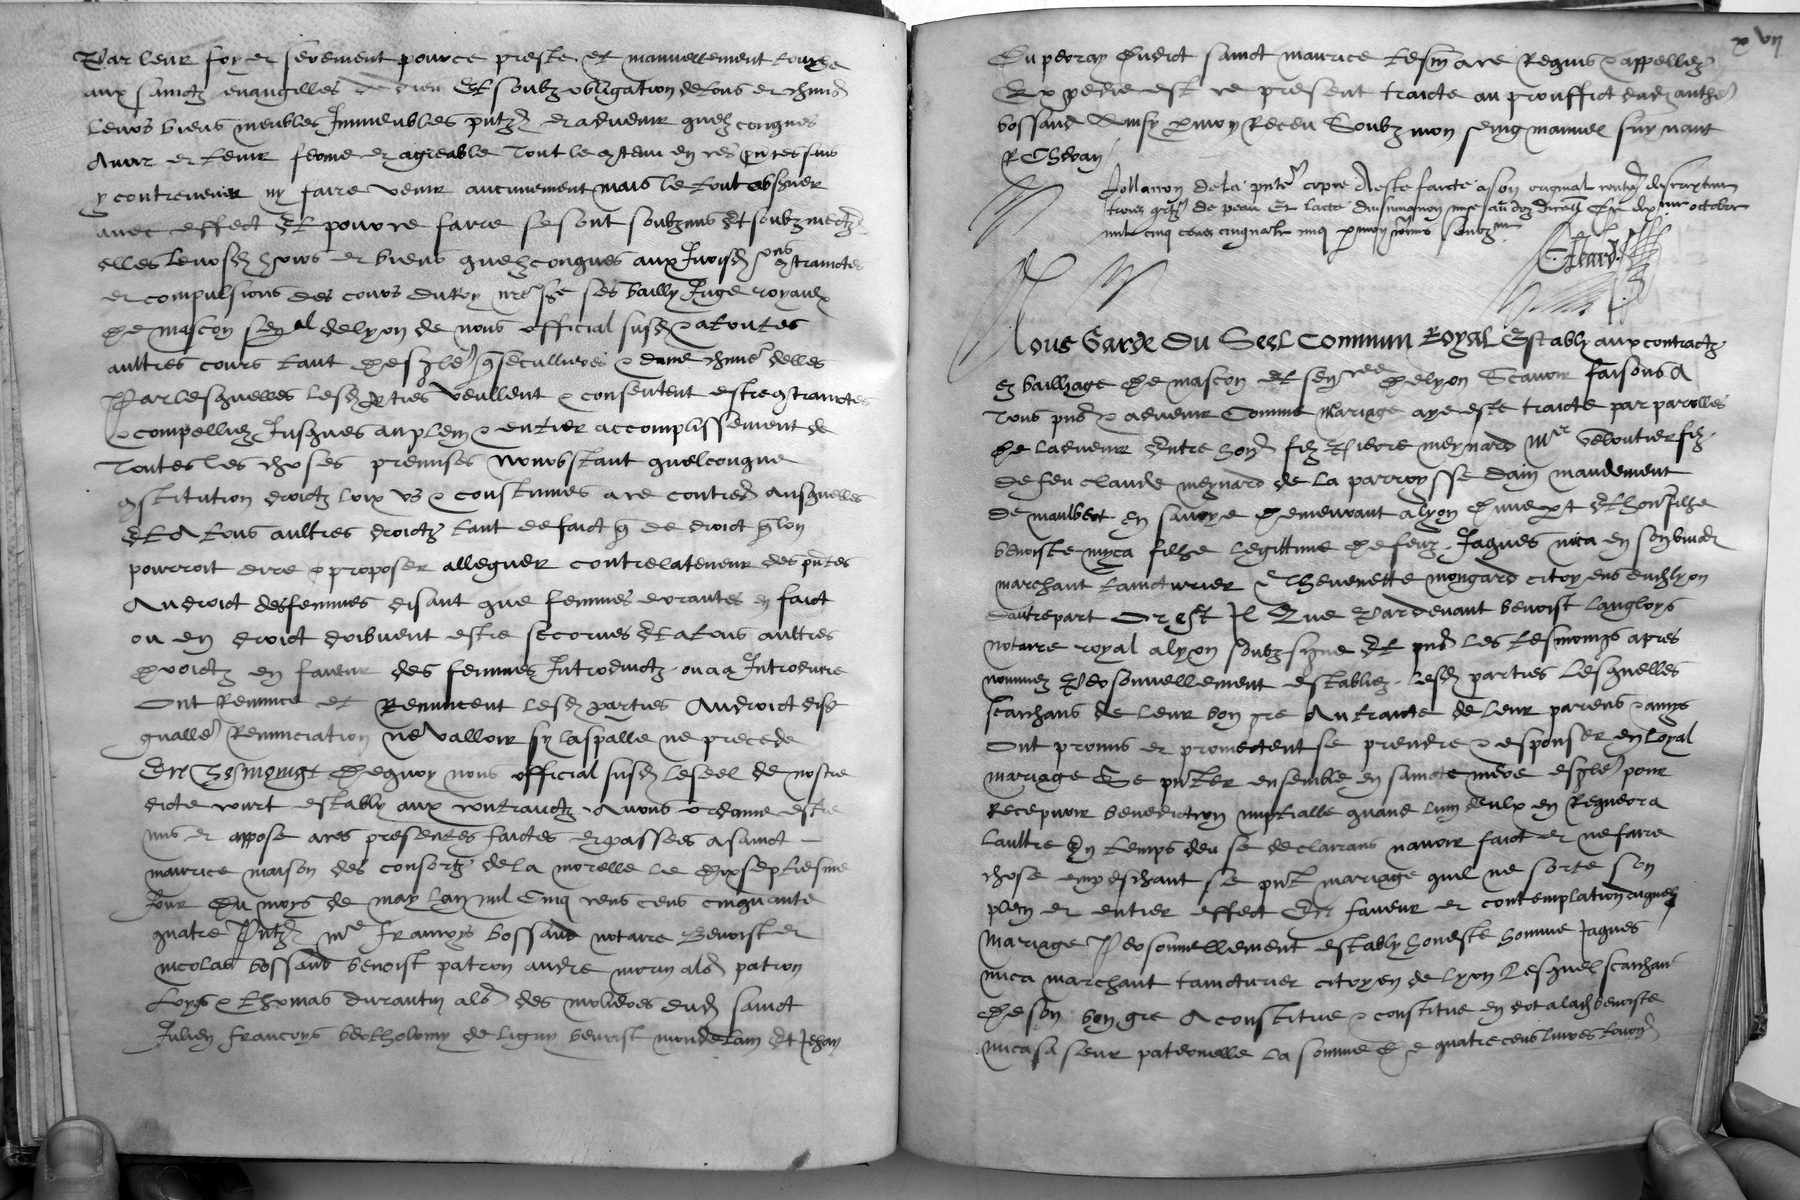 Par leur foy et serement pource preste et manuellement touche
aux sainctz evangilles de dieu Et soubz obligation de tous et chūns
leurs biens meubles Immeubles pñtz et advenir quelzconques
Avoir et tenir ferme et agreable Tout le contenu en ces pñtes sans
y contrevenir ny faire venir aucunement mais le tout observer
avec effect Et pour ce faire se sont soubzmis Et soubzmectz
elles leursd hoirs et biens quelzconques aux Iurisd contrainctes
et compulsions des cours du Roy nre sr ses bailly Iuge royaulx
de mascon senal de lyon de nous official susd et a toutes
aultres cours tant deglē seculliers et dune chūne delles
Par lesquelles lesd pties veullent et consentent estre contrainctes
et compelliez Iusques au plein et entier accomplissement de
Toutes les choses premises nonobstant quelconque
constitution droictz loix us et coustumes a ce contred Ausquelles
Et A tous aultres droictz tant de faict q de droict q lon
pourroit dire et proposer alleguer contre la teneur des pñtes
Au droict des femmes disant que femmes errantes en faict
ou en droict doibvent estre secorues Et a tous aultres
droictz en faveur des femmes Introduictz ou a Introduire
Ont Renunce et Renuncent lesd parties Au droict dis
gnalle Renunciation ne valloir sy la spalle ne precede
En Tesmoingt dequoy nous official susd le seel de nostre
dicte court estably aux contraictz Avons ordonne estre
mis et appose a ces presentes faictes et passees a sainct
maurice maison des consortz de la morelle le dixseptiesme
Jour du moys de may lan mil cinq cens cinquante
quatre Pñtz me francoys bossand notaire Benoist et
nicolas bossand benoist patron andre morin als patron
Loys et thomas durantin als des molieres dud sainct
Iulien francoys bertholomy de ligny benoist mondelain Et Jehan
xvii
Du perray dudict sainct maurice tesm a ce Requis et appellez
Expedie est ce present traicte au prouffict dud anthe
bossand Ainsy p moy Receu Soubz mon seing manuel suyvant
P Thevan
Collation de la pñte copie A este faicte a son original
de peau Et lacte dinsinuation octobre
mil cinq cens cinquante cinq p moy soubzne
Nous Garde Du Seel Commun Royal Estably aux contractz
ez bailliage de mascon et senee de lyon Scavoir faisons A
Tous pñs et advenir Comme Mariage aye este traicte par parolles
de ladvenir Entre hon filz Pierre meynard mre veloutier filz
de feu claude meynard de la parroysse dain mandement
de maulbect en savoye demeurant a lyon dune pt Et honn filhe
benoiste myca filhe legittime de feuz Jaques mica en son vivant
marchant taincturier Et Thevenette mongard citoyens dud lyon
daultre part Or est Il Que Pardevant benoist langloys
notaire royal a lyon soubzsigne Et pñs les tesmoings apres
nommez Personnellement establiz lesd parties Lesquelles
scaichans de leur bon gre Au traicte de leur parens et amys
Ont promis et promectent se prendre et espouser en loyal
mariage Se pñter ensemble en saincte mere esglē pour
Recepvoir benediction nuptialle quand lun deulx en Requerra
laultre En temps deu se declairans navoir faict et ne faire
chose empeschant se pñt mariage quil ne sorte son
plein et entier effect En faveur et contemplation duquel
Mariage Personnellement estably honneste homme Jaques
mica marchant taincturier citoyen de lyon Lesquel scaichant
de son bon gre A constitue et constitue en dot a lad benoiste
mica sa seur paternelle la somme de quatre cens livres tourn